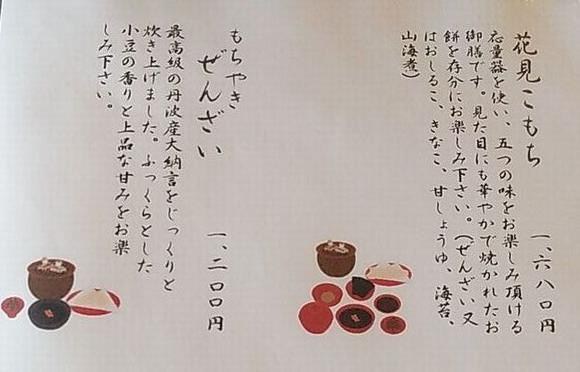 花見こもち
一、六八〇円
応量器を使い、五つの味をお楽しみ頂ける
御膳です。見た目にも華やかで焼かれたお
餅を存分にお楽しみ下さい。(ぜんざい又
はおしるこ、きなこ、甘しょうゆ、海苔、
山海煮)
もちやき
ぜんざい
一、二〇〇円
最高級の丹波産大納言をじっくりと
炊き上げました。ふっくらとした
小豆の香りと上品な甘みをお楽
しみ下さい。